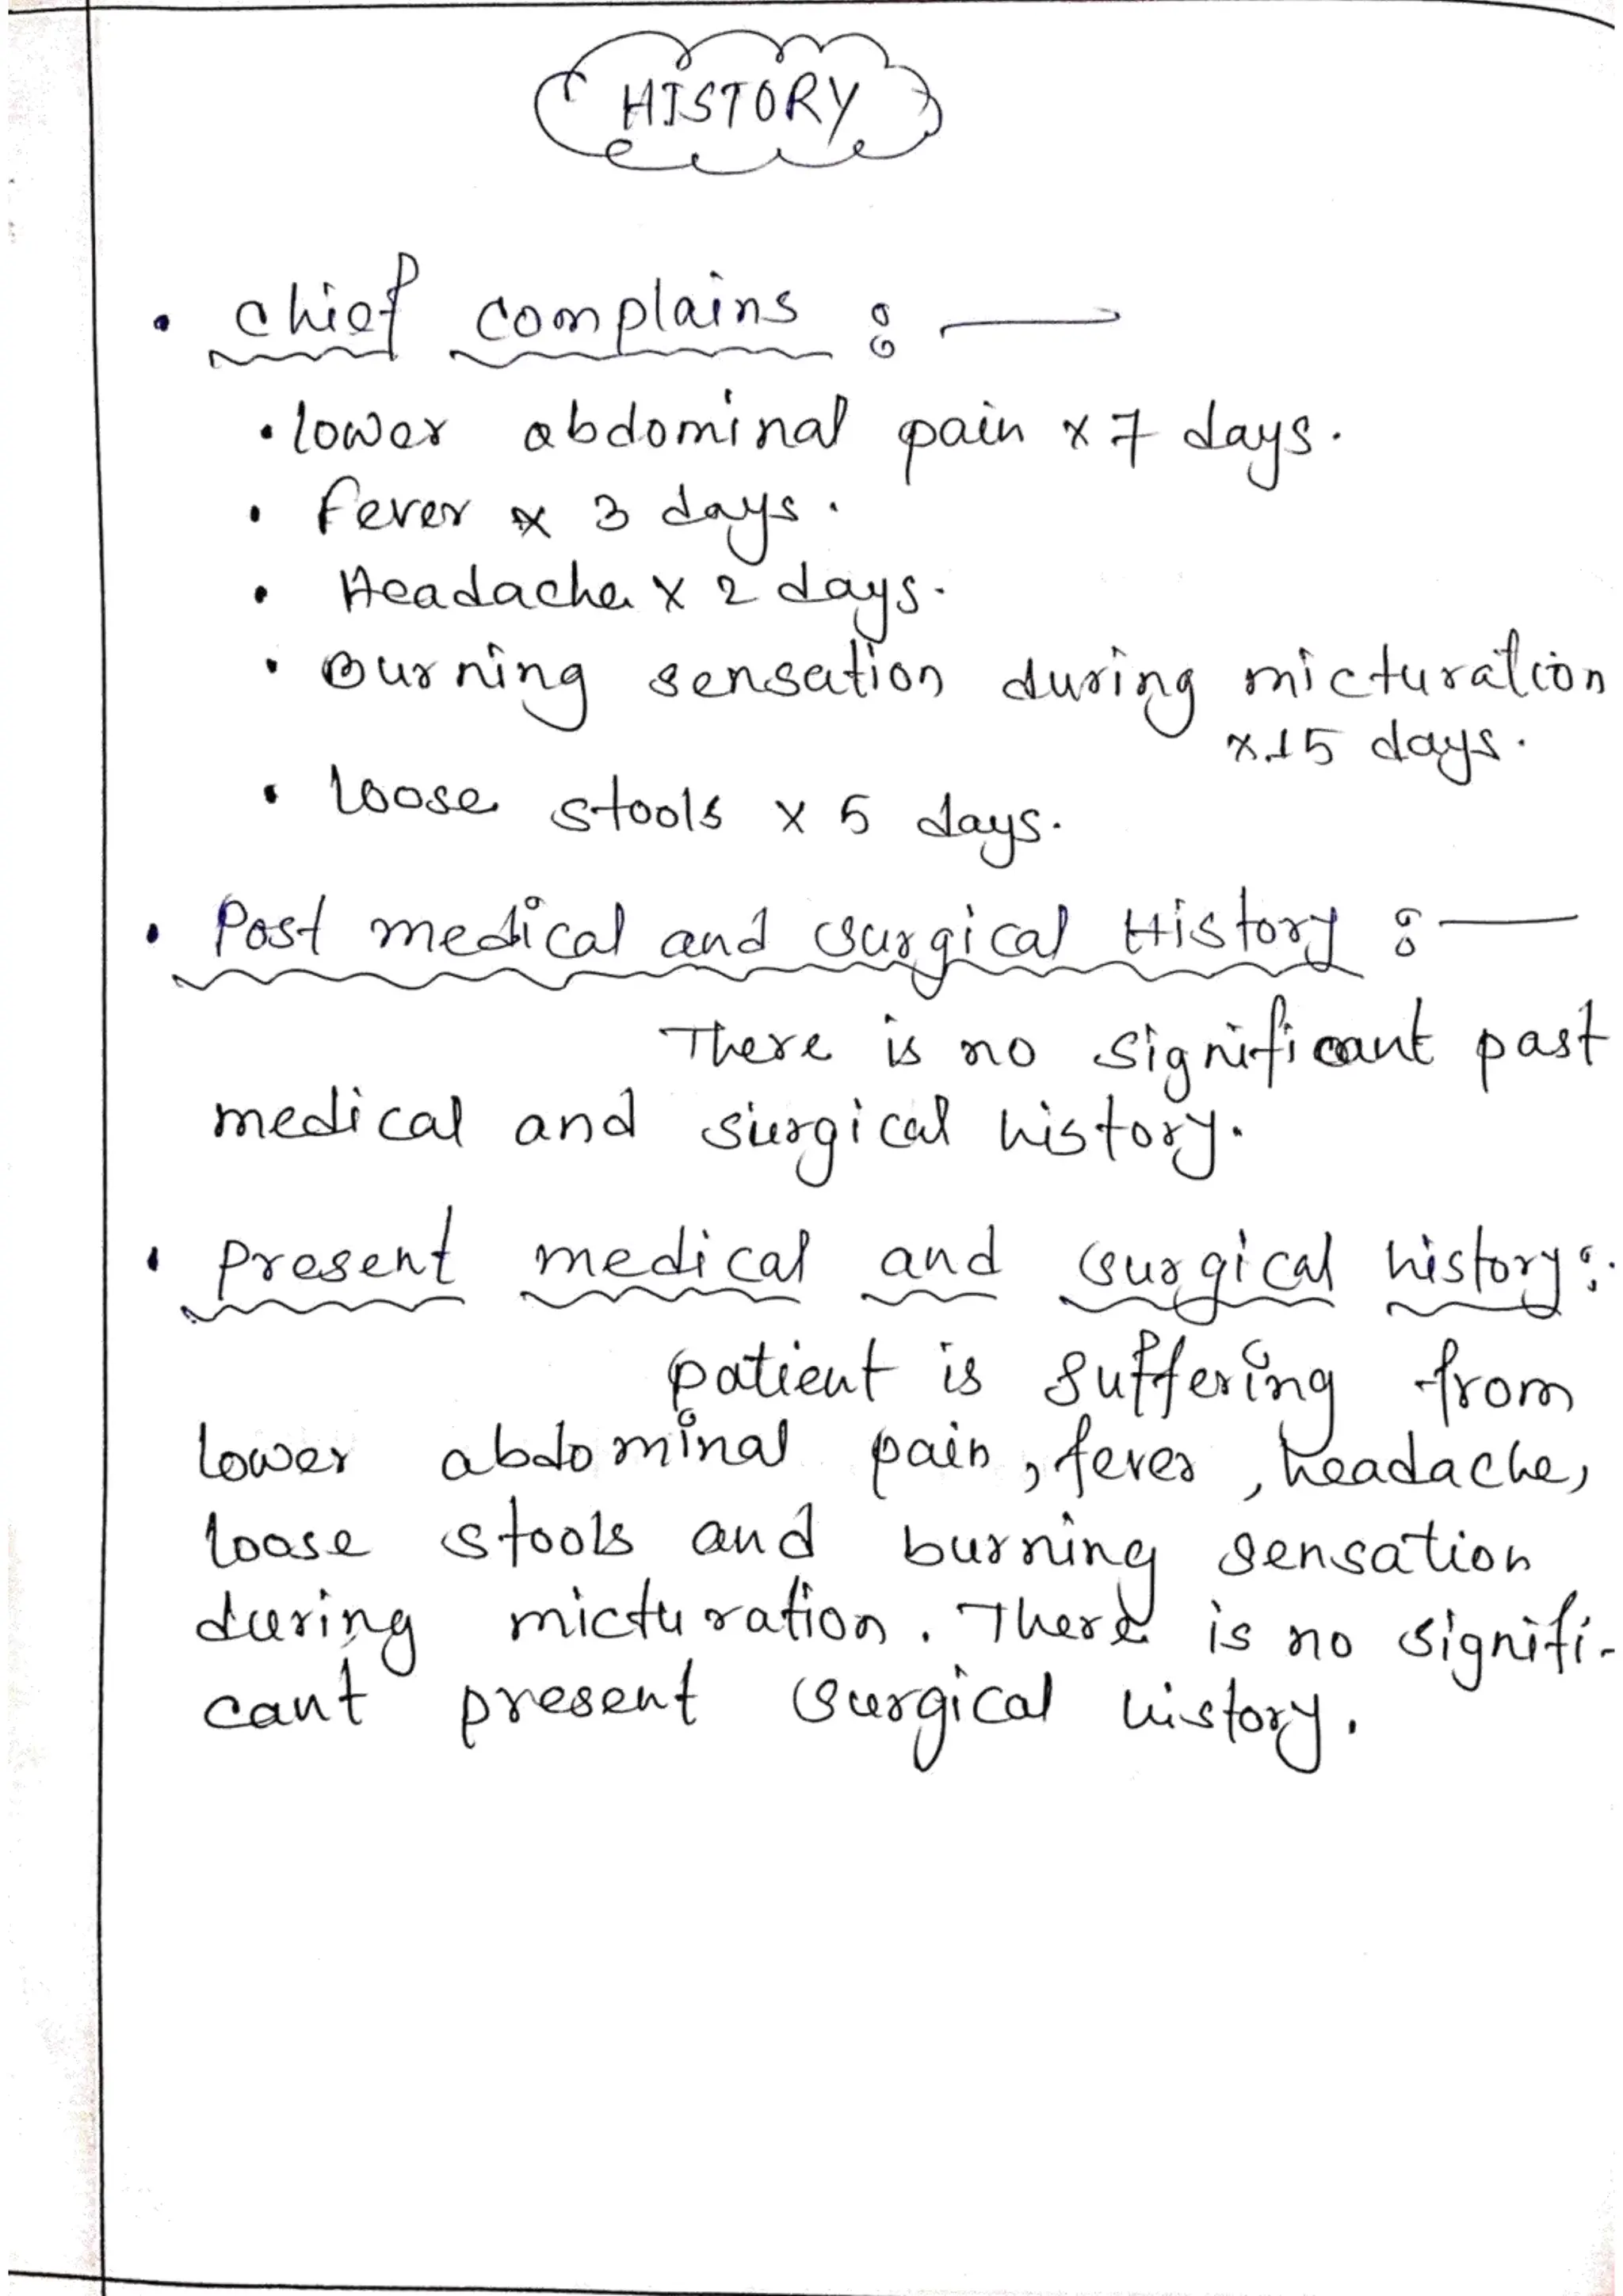 HISTORY
• chief complains :—
• lower abdominal pain x 7 days.
• fever x 3 days.
• Headache x 2 days.
• Burning sensation during micturation
x 15 days.
• loose stools x 5 days.
• Post medical and surgical History :—
There is no significant past
medical and surgical history.
• present medical and surgical history :-
patient is suffering from
lower abdominal pain, fever, headache,
loose stools and burning sensation
during micturation. There is no signifi-
cant present surgical history.